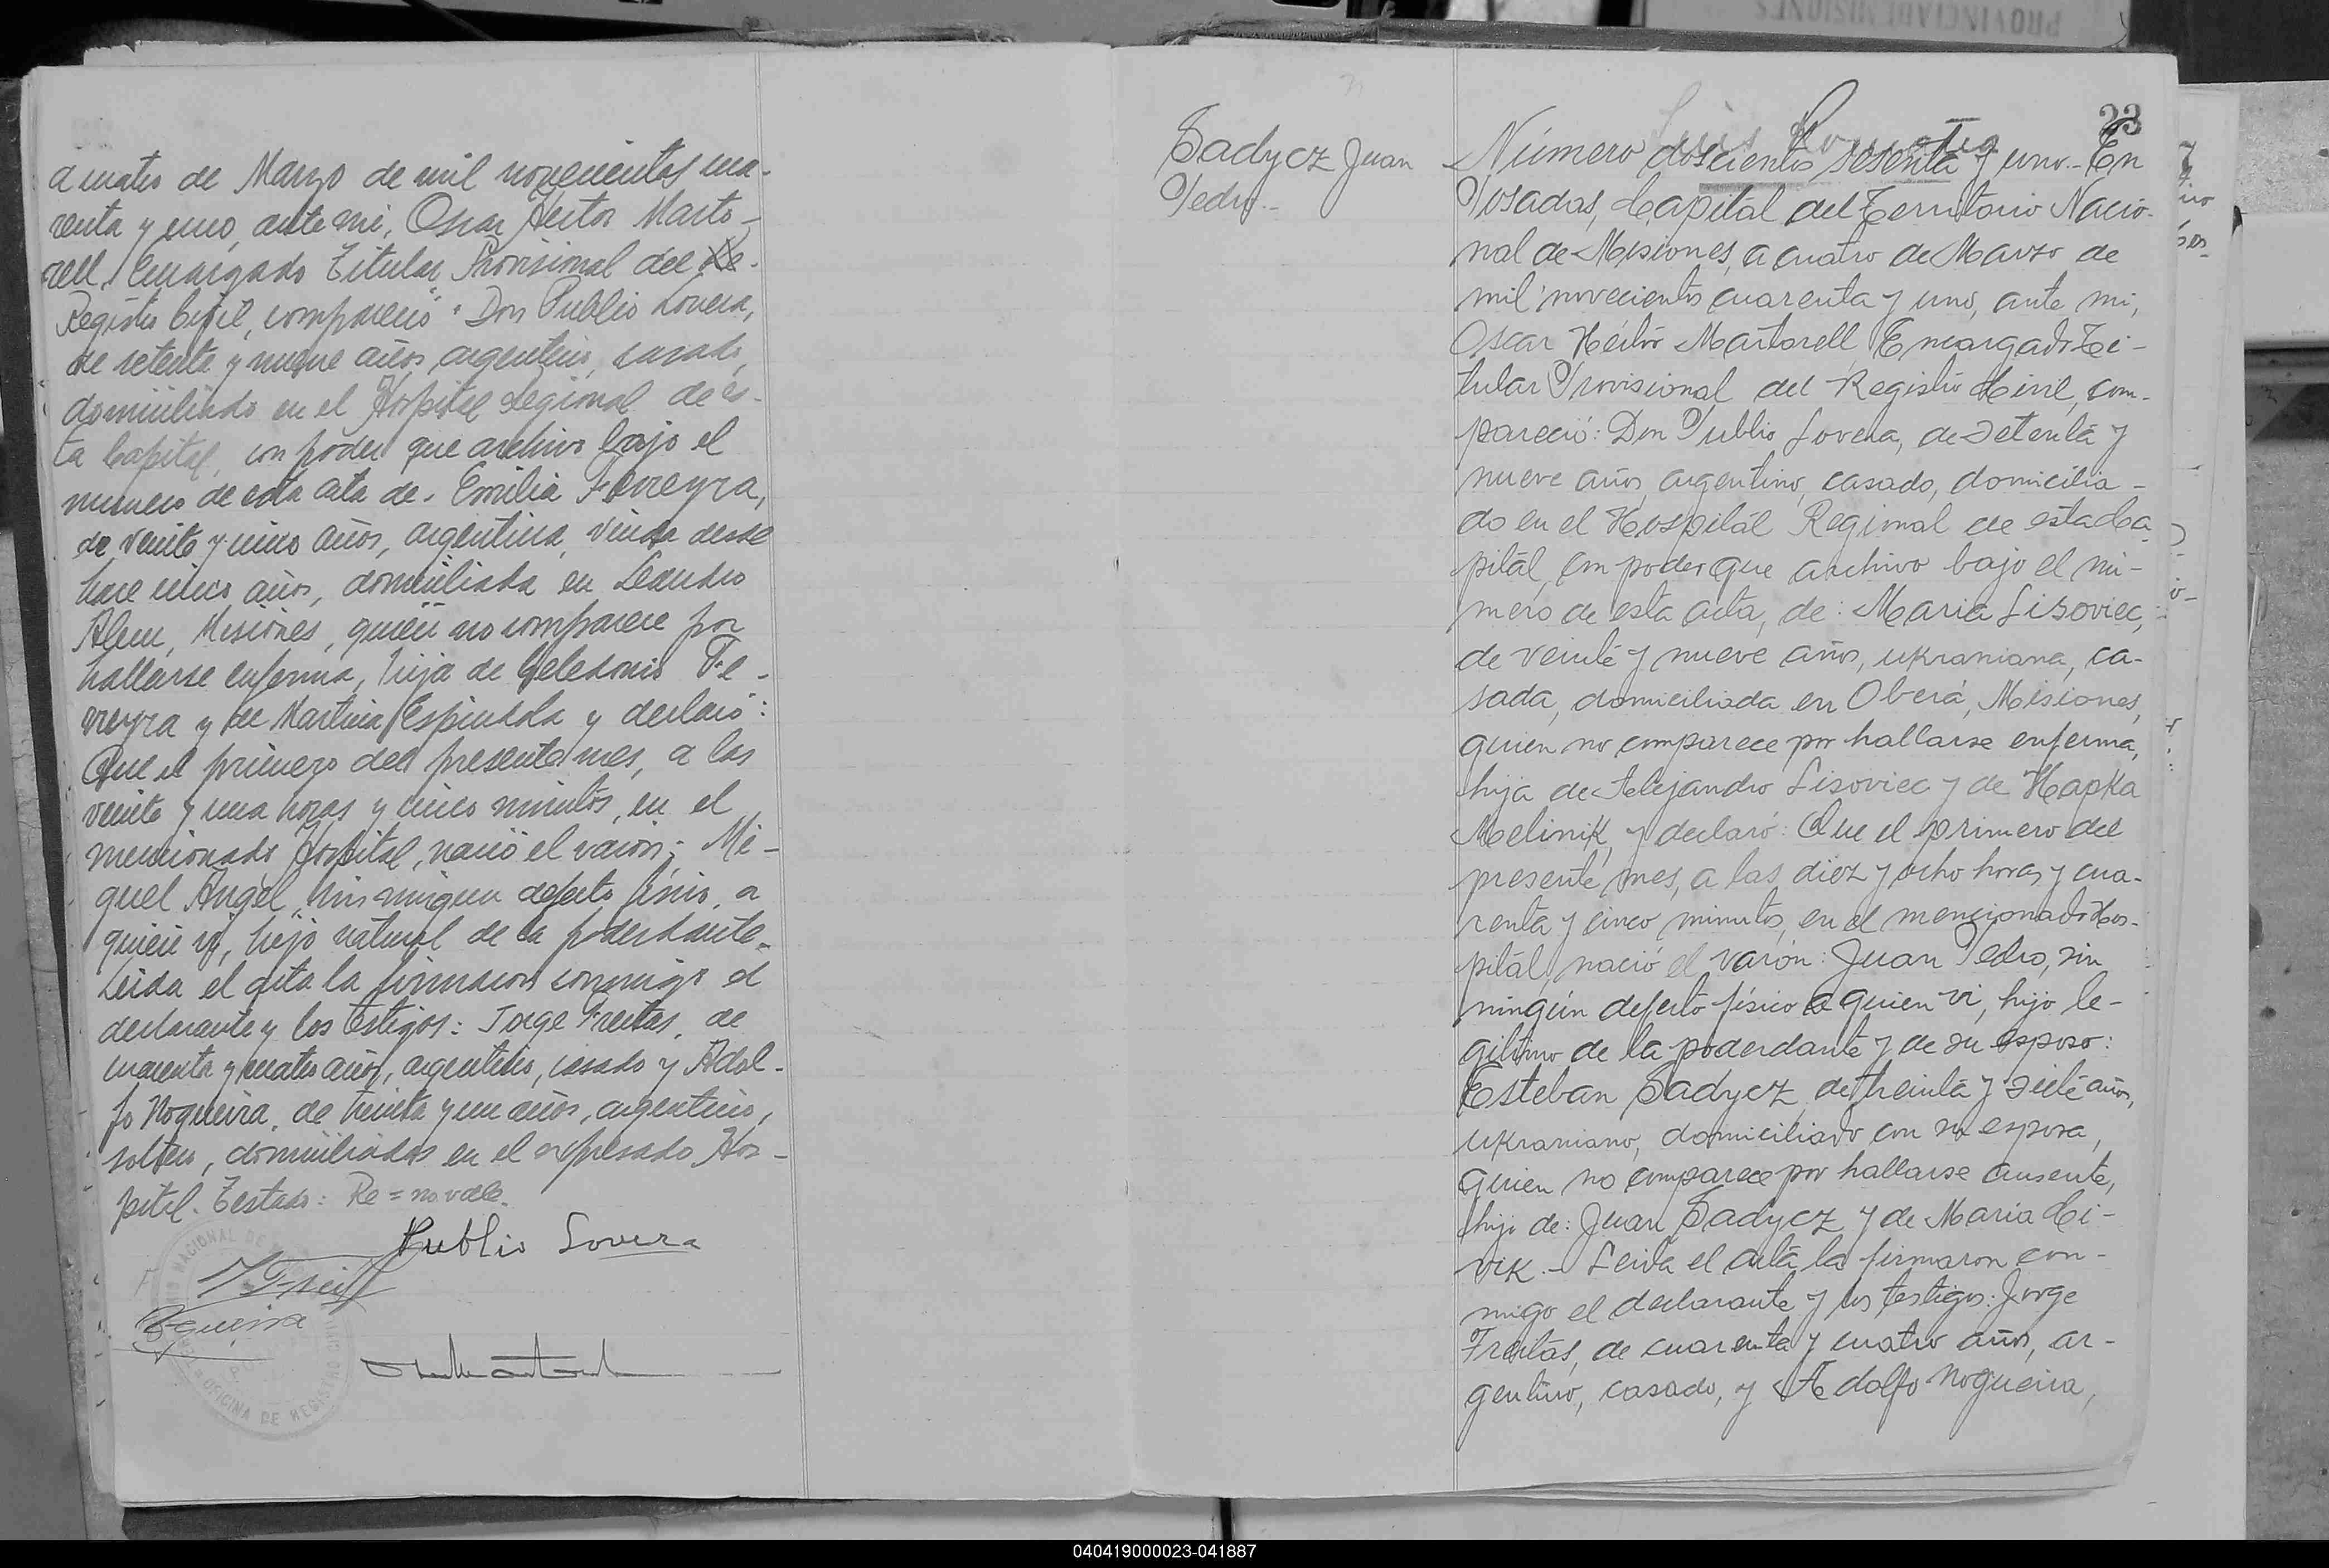 a cuatro de Marzo de mil novecientos cua-
renta y uno, ante mi, Oscar Hector Marto-
rell, Encargado Titular Provisional del Re-
Registro Civil, compareció: Don Publio Lovera,
de setenta y nueve años, argentino, casado,
domiciliado en el Hospital Regional de es-
ta Capital, con poder que archivo bajo el
número de esta acta de: Emilia Ferreyra,
de veinte y cinco años, argentina, viuda desde
hace cinco años, domiciliada en Leandro
Alem, Misiones, quien no comparece por
hallarse enferma, hija de Celedonio Fe-
rreyra y de Martina Espindola y declaró:
Que el primero del presente mes, a las
veinte y una horas y cinco minutos, en el
mencionado Hospital, nació el varón: Mi-
guel Angel, sin ningun defecto físico, a
quien vi, hijo natural de la poderdante.
Leida el acta la firmaron conmigo el
declarante y los testigos: Jorge Freitas, de
cuarenta y cuatro años, argentino, casado y Adol-
fo Nogueira, de treinta y un años, argentino,
soltero, domiciliados en el expresado Hos-
pital. Testado: Re = no vale.
Publio Lovera
OFICINA DE REGISTRO
23
Sadycz Juan
Pedro.-
Número doscientos sesenta y uno.- En
Posadas, Capital del Territorio Nacio-
nal de Misiones, a cuatro de Marzo de
mil novecientos cuarenta y uno, ante mi,
Oscar Héctor Martorell Encargado Ti-
tular Provisional del Registro Civil, com-
pareció: Don Publio Lovera, de setenta y
nueve años, argentino, casado, domicilia-
do en el Hospital Regional de esta Ca-
pital, con poder que archivo bajo el nú-
mero de esta acta, de: Maria Lisoviec,
de veinte y nueve años, ukraniana, ca-
sada, domiciliada en Oberá, Misiones,
quien no comparece por hallarse enferma,
hija de Alejandro Lisoviec y de Hapka
Melinik, y declaró: Que el primero del
presente mes, a las diez y ocho horas y cua-
renta y cinco minutos, en el mencionado Hos-
pital, nació el varón: Juan Pedro, sin
ningún defecto físico a quien vi, hijo le-
gítimo de la poderdante y de su esposo:
Esteban Sadycz, de treinta y siete años,
ukraniano, domiciliado con su esposa,
quien no comparece por hallarse ausente,
hijo de: Juan Sadycz y de Maria Ci-
vik.- Leida el acta la firmaron con-
migo el declarante y los testigos: Jorge
Freitas, de cuarenta y cuatro años, ar-
gentino, casado, y Adolfo Nogueira,
040419000023-041887